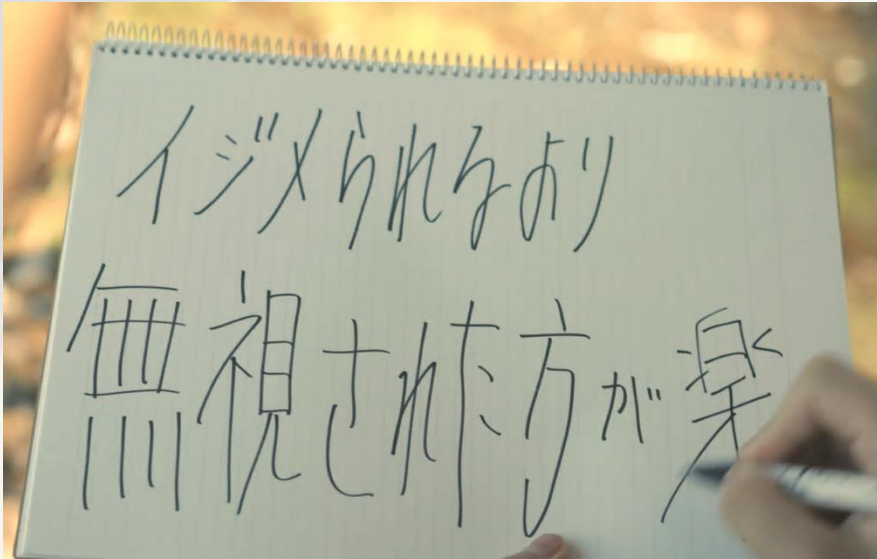 イジメられるより
無視された方が楽